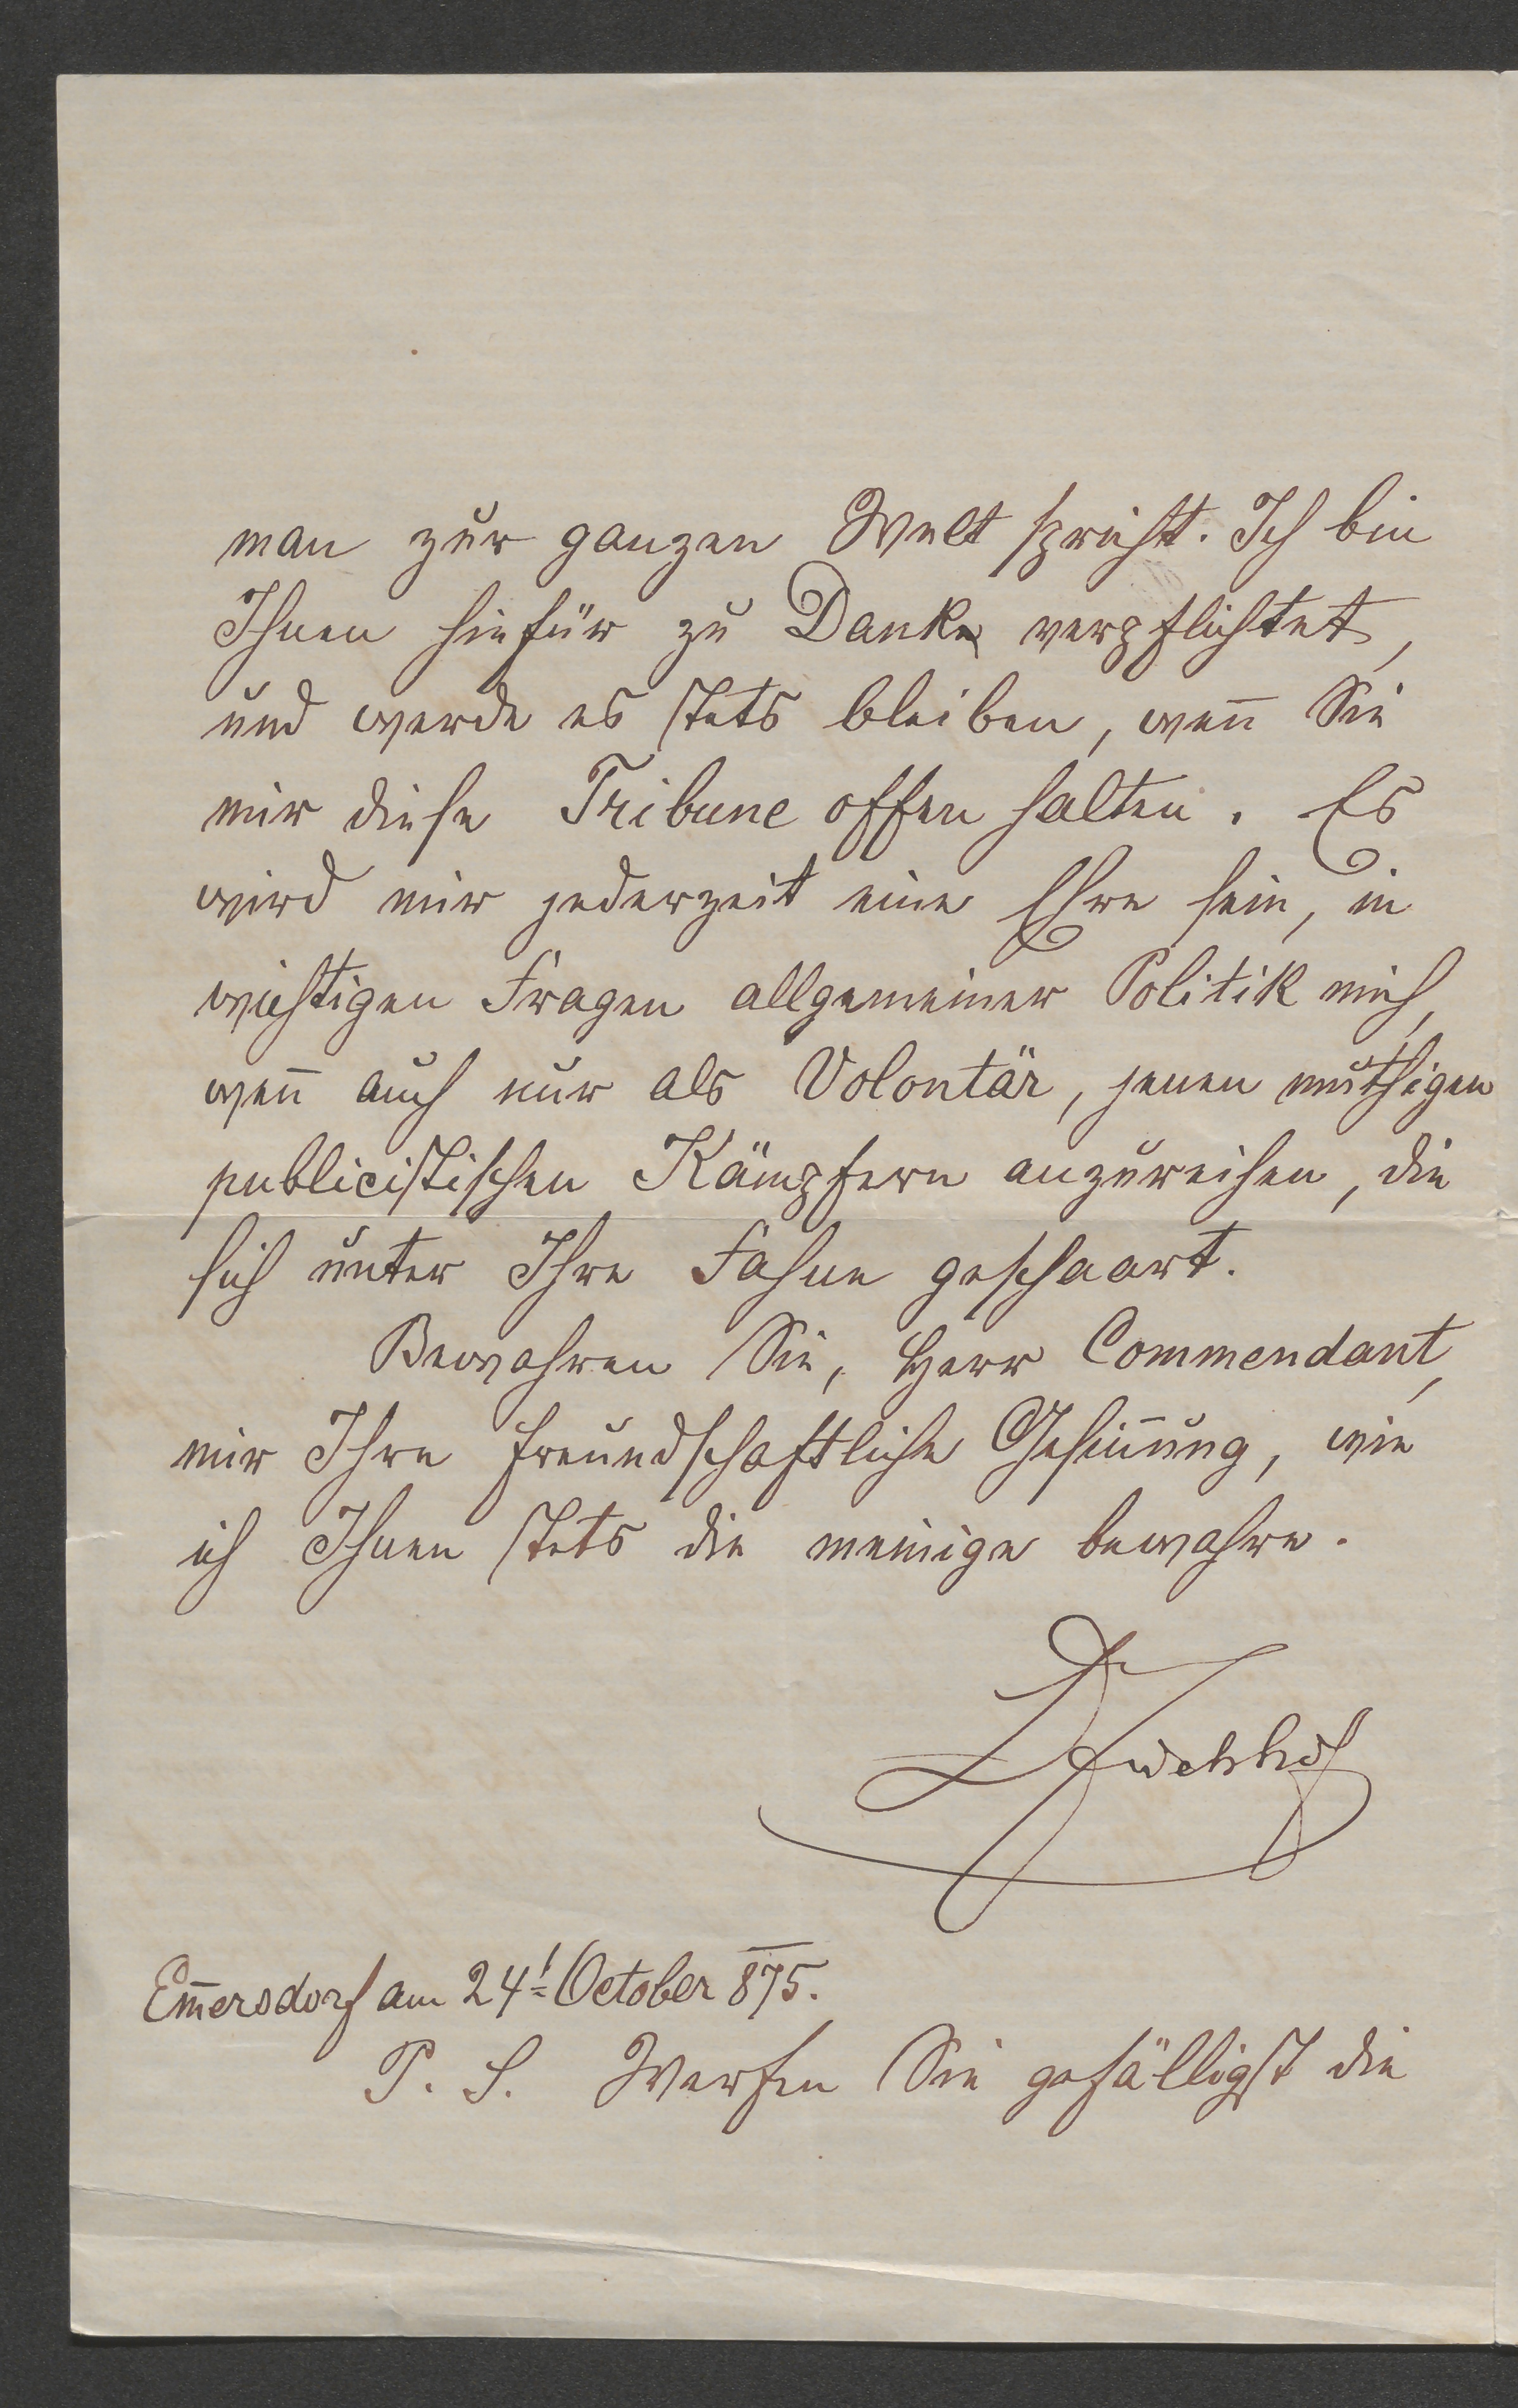 man zur ganzen Welt spricht. Ich bin
Ihnen hiefür zu Danke verpflichtet,
und werde es stets bleiben, weñ Sie
mir diese Tribune offen halten. Es
wird mir jederzeit eine Ehre sein, in
wichtigen Fragen allgemeiner Politik mich,
weñ auch nur als Volontär, jenen muthigen
publicistischen Kämpfern anzureihen, die
sich unter Ihre Fahne geschaart.
Bewahren Sie, Herr Commendant,
mir Ihre freundschaftliche Gesiñung, wie
ich Ihnen stets die meinige bewahre.
Em̃ersdorf am 24t October 875.
P. S. Werfen Sie gefälligst die